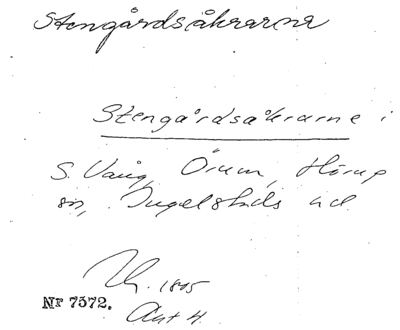 Stengårdsåkrarna
Stengårdsåkrarne i
S. Vång, Örum, Hörup
sn, Ingelstads hd.
1805
Nr 7372.
Akt 4.